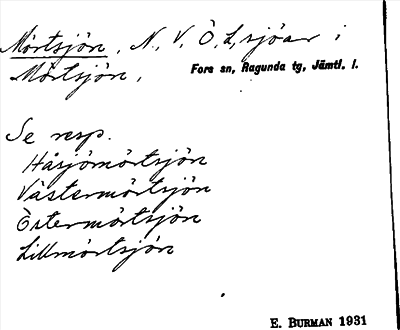 Mörtsjön, N., V., Ö., L., sjöar i
Mörtsjön,
Fors sn, Ragunda tg, Jämtl. l.
Se resp.
Håsjömörtsjön
Västermörtsjön
Östermörtsjön
Lillmörtsjön
E. BURMAN 1931